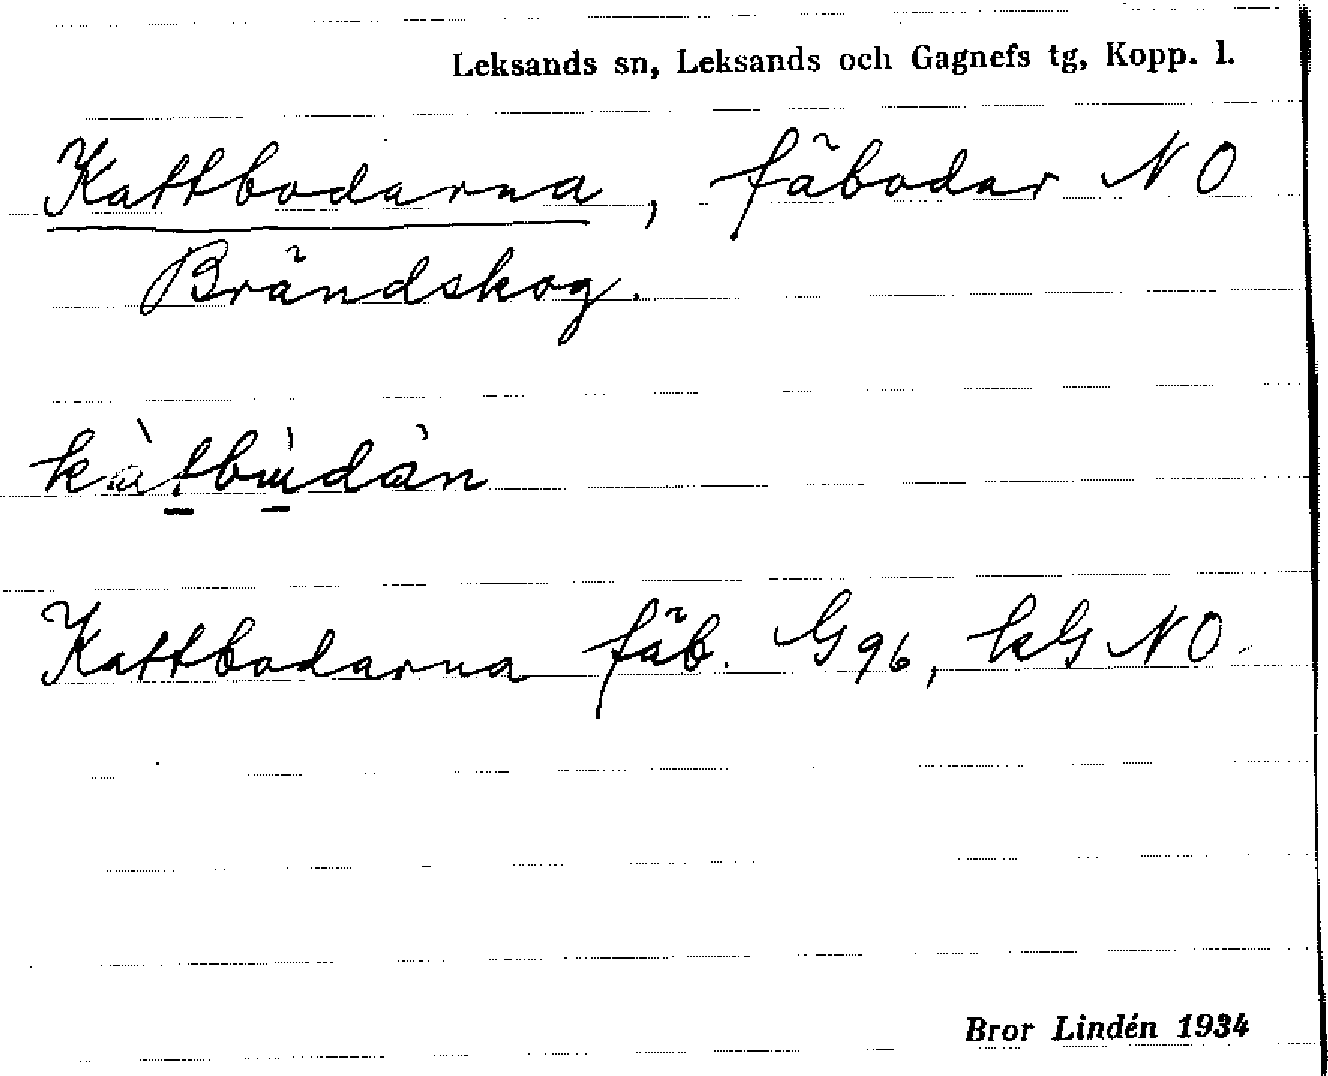 Leksands sn, Leksands och Gagnefs tg, Kopp. l.
Kattbodarna, fäbodar NO
Brändskog.
kàt̠bɯ̠̀dàn
Kattbodarna fäb. G96, kG NO.
Bror Lindén 1934